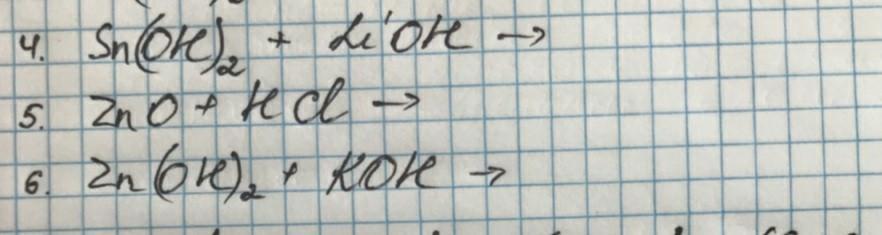 4. Sn(OH)₂ + LiOH →
5. ZnO + HCl →
6. Zn(OH)₂ + KOH →